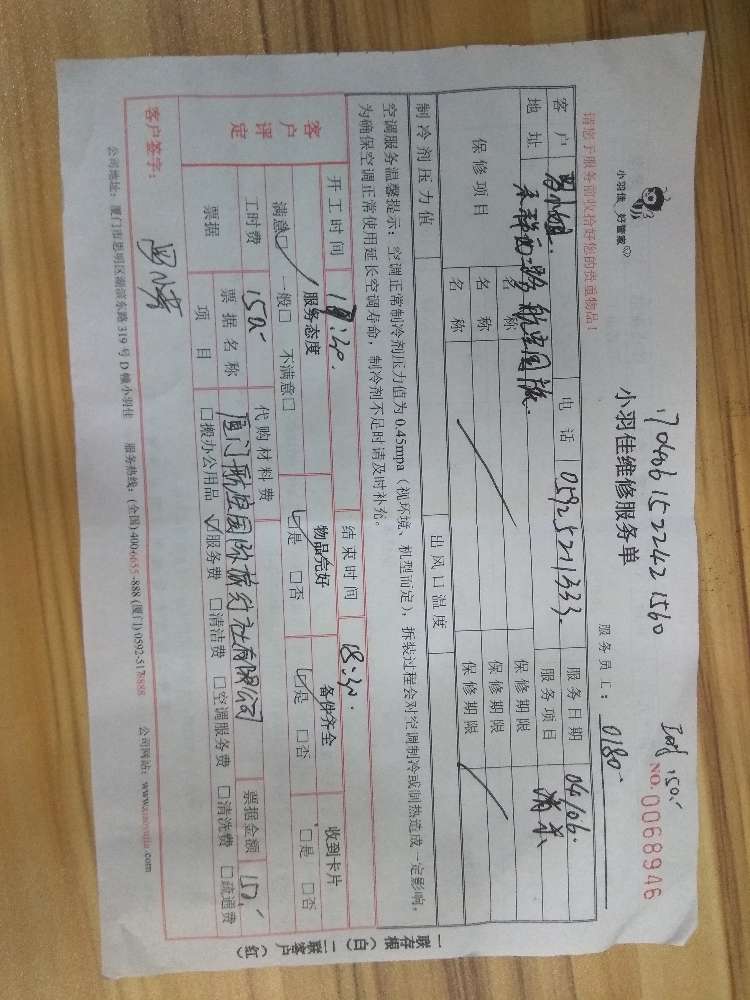 小羽佳 好管家
170406152242 1560
请您于服务前收拾好您的贵重物品！
小羽佳维修服务单
NO.0068946
服务员工： 0180
客户 电话 05925221333 服务日期 04/06
地址 航空国旅 服务项目
保修项目 名称 保修期限
名称 保修期限
名称 保修期限
制冷剂压力值 出风口温度
空调服务温馨提示：空调正常制冷剂压力值为 0.45mpa（视环境、机型而定），拆装过程会对空调制冷或制热造成一定影响，
为确保空调正常使用延长空调寿命，制冷剂不足时请及时补充。
开工时间 17:30. 结束时间 18:30.
客户评定 服务态度 物品完好 备件齐全 收到卡片
满意☑ 一般□ 不满意□ ☑是 □否 ☑是 □否 □是 □否
工时费 150 代购材料费
票据 票据名称 厦门航空国际旅行社有限公司 票据金额 150
项目 □搬办公用品 ☑服务费 □清洁费 □空调服务费 □清洗费 □疏通费
客户签字：
公司地址：厦门市思明区湖滨东路 319 号 D 幢小羽佳 服务热线：(全国) 4006655-888 (厦门) 0592-5178888 公司网站：www.xiaoyujia.com
一联存根（白） 二联客户（红）